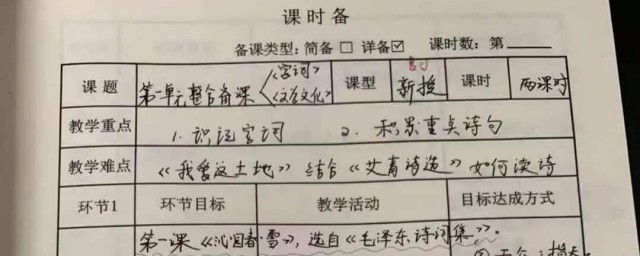 课时备
备课类型：简备 □ 详备☑ 课时数：第
课题 第一单元整合备课 《字词》 《文学文化》 课型 新授 课时 两课时
教学重点 1. 识记字词 2. 积累重点诗句
教学难点 《我爱这土地》 结合《艾青诗选》 如何读诗
环节1 环节目标 教学活动 目标达成方式
第一课《沁园春·雪》，选自《毛泽东诗词集》。